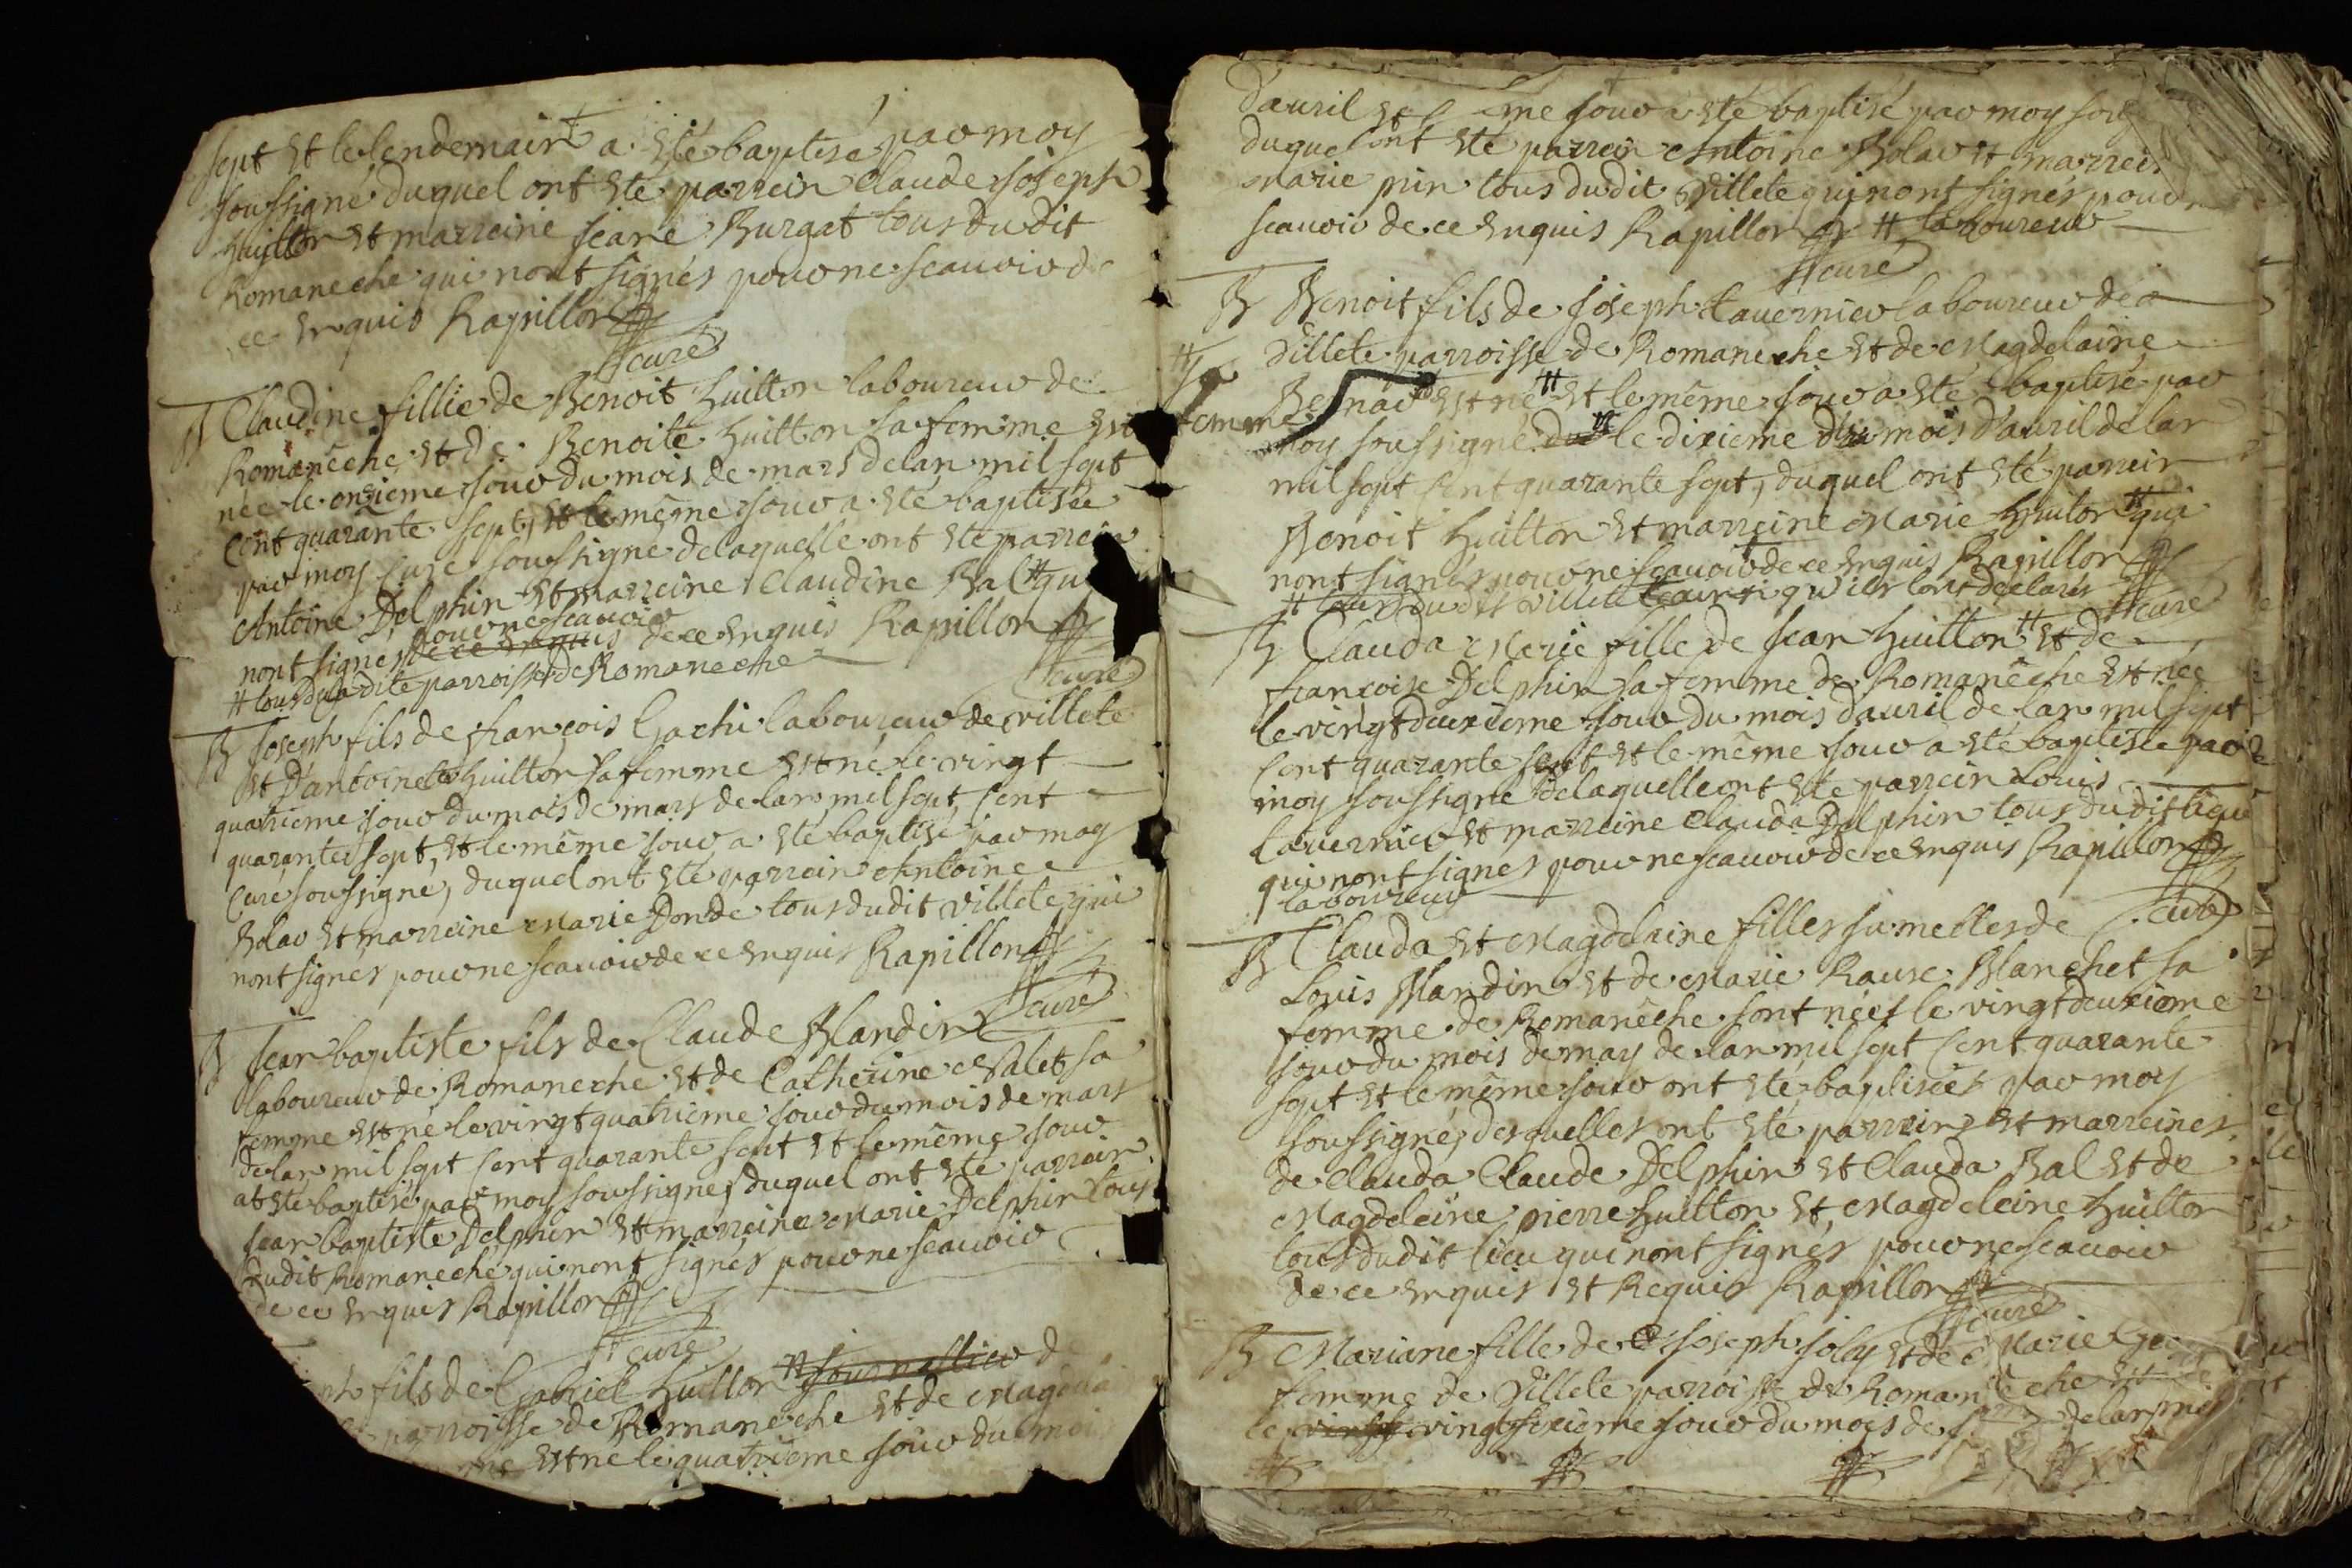 sept et le lendemain a esté baptisé par moy
soussigné duquel ont esté parrein Claude Joseph
huitton et marreine Jeane Burgat tous dudit
Romaneche qui n'ont signés pour ne scauoir de
ce enquis Rapillon
curé
B Claudine fillie de Benoit huitton laboureur de
Romanêche et de Benoite huitton sa femme est
née le onzieme jour du mois de mars de lan mil sept
cent quarante sept, et le même jour a esté baptisée
par moy Curé soussigné de laquelle ont esté parrein
Antoine Delphin et marreine Claudine Bal # qui
pour ne scauoir
nont signes de ce enquis de ce enquis Rapillon
# tous de la dite parroisse de Romaneche
curé
B Joseph fils de françois Gachi laboureur de villete
et D'antoinete huitton sa femme est né le vingt
quatrieme jour du mois de mars de lan mil sept cent
quarante sept, et le même jour a esté baptisé par moy
Curé soussigné, duquel ont esté parrein Antoine
Bolar et marreine Marie Donde tous dudit villete qui
nont signés pour ne scauoir de ce enquis Rapillon
curé
B Jean baptiste fils de Claude Blandin
laboureur de Romaneche et de Catherine Valet sa
femme est né le vingt quatrieme jour du mois de mars
de lan mil sept cent quarante sept et le même jour
at esté baptisé par moy soussigné, duquel ont esté parrein
Jean baptiste Delphin et marreine Marie Delphin tous
dudit Romaneche qui nont signés pour ne scauoir
de ce enquis Rapillon
curé
fils de Gabriel huitton # journallier d
parroisse de Romaneche et de Magd
est né le quatrieme jour du moi
d'auril et me jour a esté baptisé par moy sous
duquel ont esté parrein Antoine Bolar et marrein
Marie pin tous dudit Villete qui nont signés pour
scauoir de ce enquis Rapillon # laboureur
curé
B Benoit fils de joseph tauernier laboureur de
Villete parroisse de Romaneche et de Magdelaine
#
Bernard est né # et le même jour a esté baptisé par
femme
moy soussigné le dixieme du mois d'auril de lan
mil sept cent quarante sept, duquel ont esté parrein
Benoit huitton et marreine Marie huiton # qui
nont signés pour ne scauoir de ce enquis Rapillon
# tous dudit villete ainsi qu'ils lont declarés
curé
B Clauda Marie fille de Jean huitton # et de
françoise Delphin sa femme de Romanêche est née
le vingt deuxieme jour du mois dauril de lan mil sept
cent quarante sept et le même jour a esté baptisée par
moy soussigné de laquelle ont esté parrein Louis
tauernier et marreine Clauda Delphin tous dudit lieu
qui nont signes pour ne scauoir de ce enquis Rapillon
# laboureur
curé
B Clauda et Magdelaine filles jumelles de
Louis Blandin et de Marie Rause Blanchet sa
femme de Romanêche sont nées le vingt deuxieme
jour du mois de may de lan mil sept cent quarante
sept et le même jour ont esté baptisées par moy
soussigné, desquelles ont esté parreins et marreines
de Clauda Claude Delphin et Clauda Bal et de
Magdeleine pierre huitton et Magdeleine huitton
tous dudit lieu qui nont signés pour ne scauoir
de ce enquis et Requis Rapillon
curé
B Mariane fille de Joseph joly et de Marie
femme de Villete parroisse de Romaneche
le vingt vingt sixieme jour du mois de de lan mil